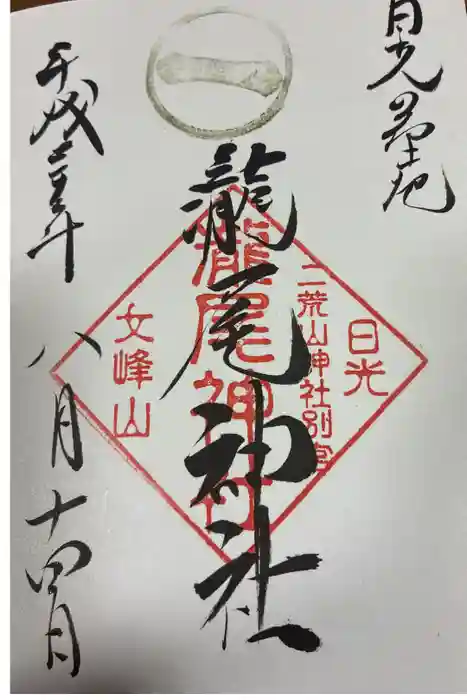 日光
一
瀧尾神社
日光
二荒山神社別宮
瀧尾神社
女峰山
平成三十年
八月十四日